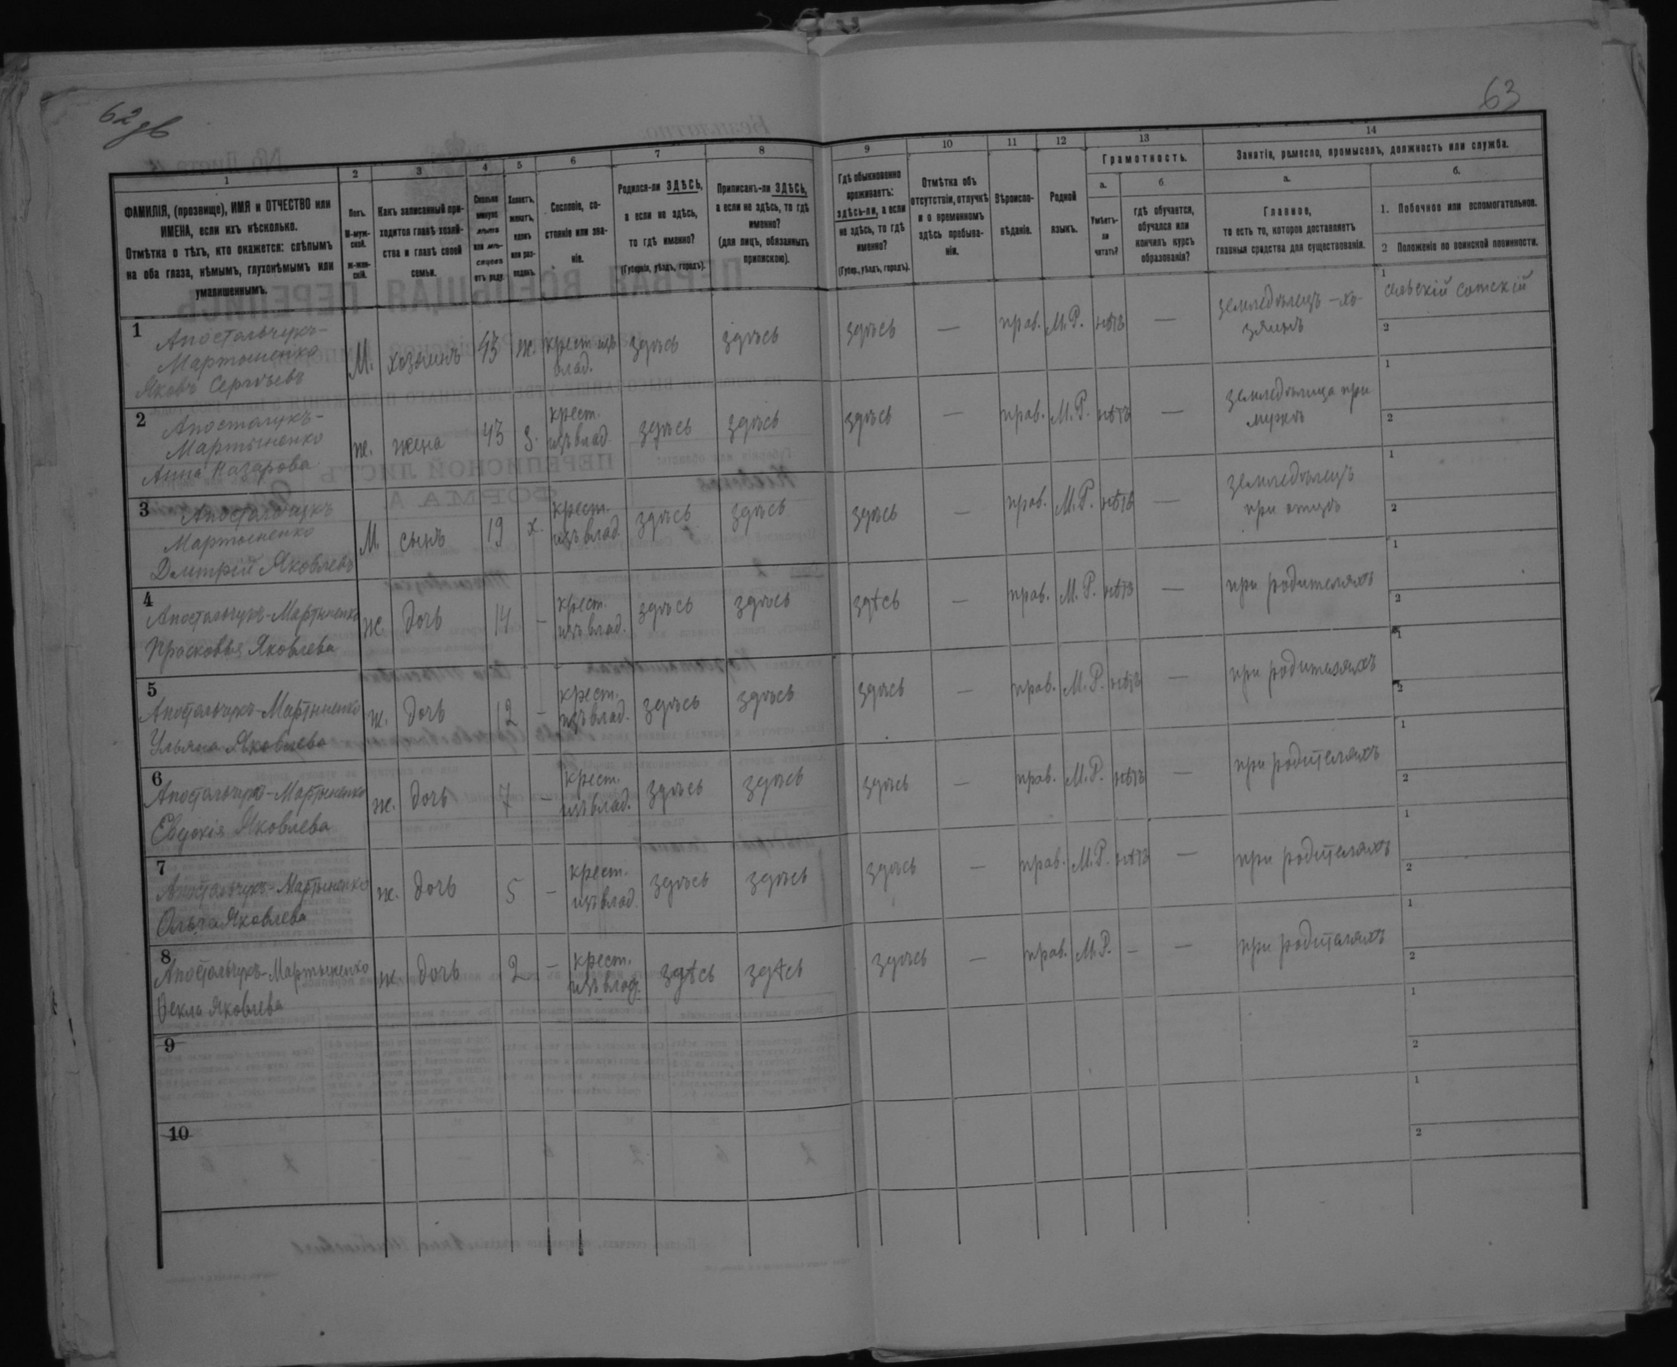 62 зв
63
1
2
3
4
5
6
7
8
9
10
11
12
13
14
ФАМИЛІЯ, (прозвище), ИМЯ и ОТЧЕСТВО или
ИМЕНА, если ихъ нѣсколько.
Отмѣтка о тѣхъ, кто окажется: слѣпымъ
на оба глаза, нѣмымъ, глухонѣмымъ или
умалишеннымъ.
Полъ.
М-муж-
ской.
Ж-жен-
скій.
Какъ записанный при-
ходится главѣ хозяй-
ства и главѣ своей
семьи.
Сколько
минуло
лѣтъ
или мѣ-
сяцевъ
отъ роду.
Холостъ,
женатъ,
вдовъ
или раз-
веденъ.
Сословіе, со-
стояніе или зва-
ніе.
Родился-ли ЗДѢСЬ,
а если не здѣсь,
то гдѣ именно?
(Губернія, уѣздъ, городъ).
Приписанъ-ли ЗДѢСЬ,
а если не здѣсь, то гдѣ
именно?
(для лицъ, обязанныхъ
припискою).
Гдѣ обыкновенно
проживаетъ:
здѣсь-ли, а если
не здѣсь, то гдѣ
именно?
(Губер., уѣздъ, городъ).
Отмѣтка объ
отсутствіи, отлучкѣ
и о временномъ
здѣсь пребыва-
ніи.
Вѣроиспо-
вѣданіе.
Родной
языкъ.
Грамотность.
а.
Умѣетъ-
ли
читать?
б.
гдѣ обучается,
обучался или
кончилъ курсъ
образованія?
Занятія, ремесло, промыселъ, должность или служба.
а.
Главное,
то есть то, которое доставляетъ
главныя средства для существованія.
б.
1. Побочное или вспомогательное.
2 Положеніе по воинской повинности.
1
Апостальчукъ-
Мартыненко
Яковъ Сергѣевъ
М. хозяинъ 43 ж. крест. изъ
влад. здѣсь здѣсь здѣсь — прав. М.Р. нѣтъ — земледѣлецъ - хо-
зяинъ
1 сотскій
2
2
Апостальчукъ-
Мартыненко
Анна Назарова
ж. жена 43 з. крест.
изъ влад. здѣсь здѣсь здѣсь — прав. М.Р. нѣтъ — земледѣлица при
мужѣ
1
2
3
Апостальчукъ
Мартыненко
Дмитрій Яковлевъ
М. сынъ 19 х. крест.
изъ влад. здѣсь здѣсь здѣсь — прав. М.Р. нѣтъ — земледѣлецъ
при отцѣ
1
2
4
Апостальчукъ-Мартыненко
Просковья Яковлева
ж. дочь 14 — крест.
изъ влад. здѣсь здѣсь здѣсь — прав. М.Р. нѣтъ — при родителяхъ
1
2
5
Апостальчукъ-Мартыненко
Ульяна Яковлева
ж. дочь 12 — крест.
изъ влад. здѣсь здѣсь здѣсь — прав. М.Р. нѣтъ — при родителяхъ
1
2
6
Апостальчукъ-Мартыненко
Евдокія Яковлева
ж. дочь 7 — крест.
изъ влад. здѣсь здѣсь здѣсь — прав. М.Р. нѣтъ — при родителяхъ
1
2
7
Апостальчукъ-Мартыненко
Ольга Яковлева
ж. дочь 5 — крест.
изъ влад. здѣсь здѣсь здѣсь — прав. М.Р. нѣтъ — при родителяхъ
1
2
8
Апостальчукъ-Мартыненко
Ѳекла Яковлева
ж. дочь 2 — крест.
изъ влад. здѣсь здѣсь здѣсь — прав. М.Р. — — при родителяхъ
1
2
9
1
2
10
1
2